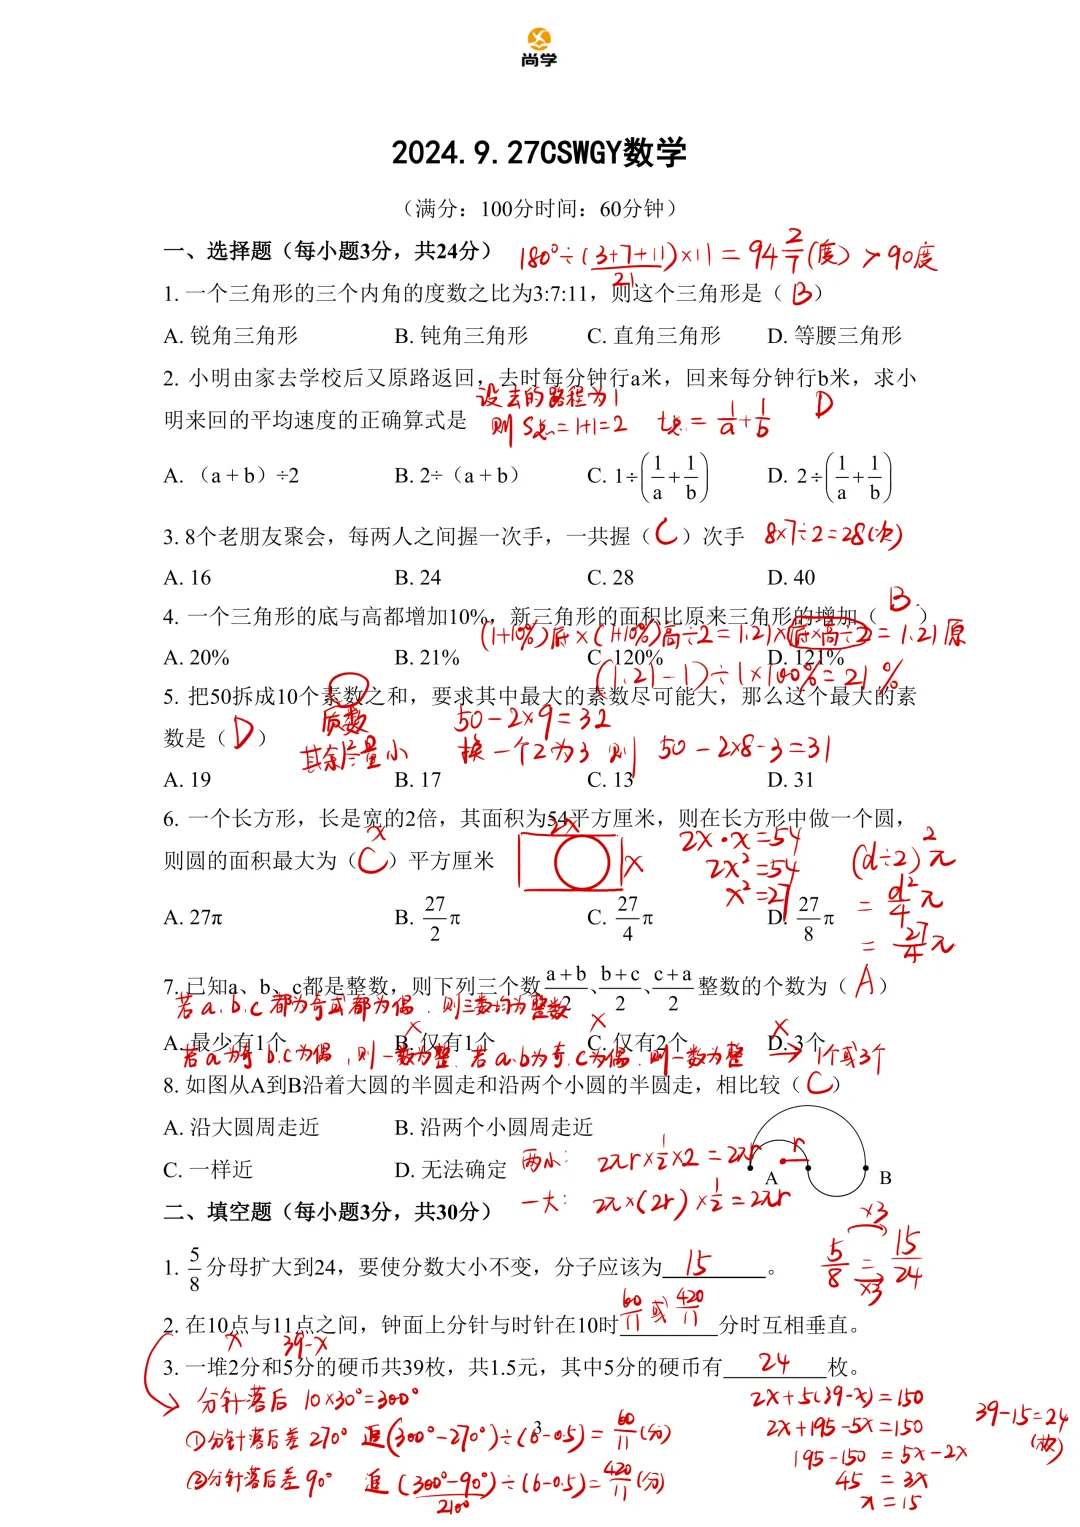 尚学
2024.9.27CSWGY数学
（满分：100分时间：60分钟）
一、选择题（每小题3分，共24分） 180°÷(3+7+11)×11=94 2/7(度)>90度
21
1. 一个三角形的三个内角的度数之比为3:7:11，则这个三角形是（ B ）
A. 锐角三角形 B. 钝角三角形 C. 直角三角形 D. 等腰三角形
2. 小明由家去学校后又原路返回，去时每分钟行a米，回来每分钟行b米，求小
设去的路程为1
明来回的平均速度的正确算式是 则 S总=1+1=2 t总=1/a+1/b D
A. （a + b）÷2 B. 2÷（a + b） C. 1÷(1/a+1/b) D. 2÷(1/a+1/b)
3. 8个老朋友聚会，每两人之间握一次手，一共握（ C ）次手 8×7÷2=28(次)
A. 16 B. 24 C. 28 D. 40
4. 一个三角形的底与高都增加10%，新三角形的面积比原来三角形的增加（ B ）
(1+10%)底×(1+10%)高÷2=1.21×底×高÷2=1.21原
A. 20% B. 21% C. 120% D. 121%
(1.21-1)÷1×100%=21%
5. 把50拆成10个素数之和，要求其中最大的素数尽可能大，那么这个最大的素
质数 50-2×9=32
数是（ D ） 其余尽量小 换一个2为3 则 50-2×8-3=31
A. 19 B. 17 C. 13 D. 31
6. 一个长方形，长是宽的2倍，其面积为54平方厘米，则在长方形中做一个圆，
x 2x 2x·x=54
则圆的面积最大为（ C ）平方厘米 x 2x²=54 (d÷2)²π
x²=27 =d²/4 π
A. 27π B. 27/2 π C. 27/4 π D. 27/8 π
=27/4 π
7. 已知a、b、c都是整数，则下列三个数 a+b/2、b+c/2、c+a/2 整数的个数为（ A ）
若a.b.c都为奇或都为偶，则三数均为整数
A. 最少有1个 B. 仅有1个 C. 仅有2个 D. 3个
× × ×
若a为奇 b.c为偶，则一数为整. 若a.b为奇.c为偶.则一数为整 → 1个或3个
8. 如图从A到B沿着大圆的半圆走和沿两个小圆的半圆走，相比较（ C ）
A. 沿大圆周走近 B. 沿两个小圆周走近
C. 一样近 D. 无法确定 两小: 2πr×1/2×2=2πr
r
A B
二、填空题（每小题3分，共30分） 一大: 2π×(2r)×1/2=2πr
1. 5/8 分母扩大到24，要使分数大小不变，分子应该为 15 。 5/8=15/24 ×3 ×3
2. 在10点与11点之间，钟面上分针与时针在10时 60/11 或 420/11 分时互相垂直。
x 39-x
3. 一堆2分和5分的硬币共39枚，共1.5元，其中5分的硬币有 24 枚。
分针落后 10×30°=300° 2x+5(39-x)=150
①分针落后差270° 追(300°-270°)÷(6-0.5)=60/11(分) 2x+195-5x=150 39-15=24(枚)
3
195-150=5x-2x
②分针落后差90° 追(300°-90°)÷(6-0.5)=420/11(分) 45=3x
210° x=15